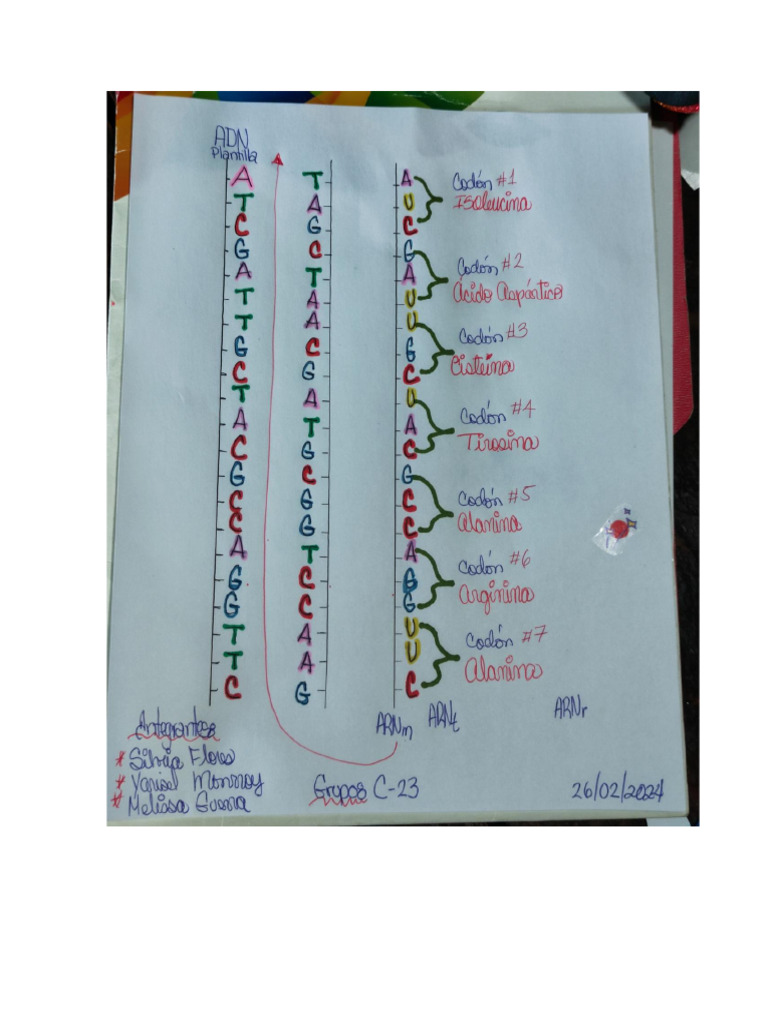 ADN
Plantilla
A T A Codón #1
T A U Isoleucina
C G C
G C G Codón #2
A T A Ácido Aspártico
T A U
T A U Codón #3
G C G Cisteína
C G C
T A U Codón #4
A T A Tirosina
C G C
G C G Codón #5
C G C Alanina
C G C
A T A Codón #6
G C G Arginina
G C G
T A U Codón #7
T A U Alanina
C G C
ARNm ARNt ARNr
Antegrantes
* Silvija Flores
* Yarisel Monrroy
* Melissa Guerra
Grupos C-23
26/02/2024